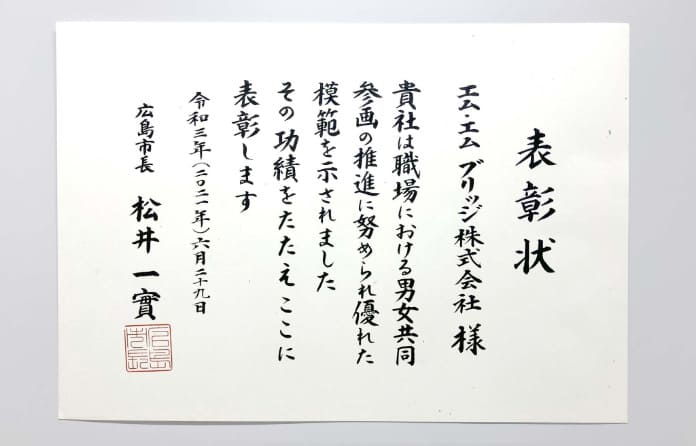 表彰状
エム・エム ブリッジ株式会社 様
貴社は職場における男女共同
参画の推進に努められ優れた
模範を示されました
その功績をたたえここに
表彰します
令和三年(二〇二一年)六月二十九日
広島市長 松井一實
広島市長